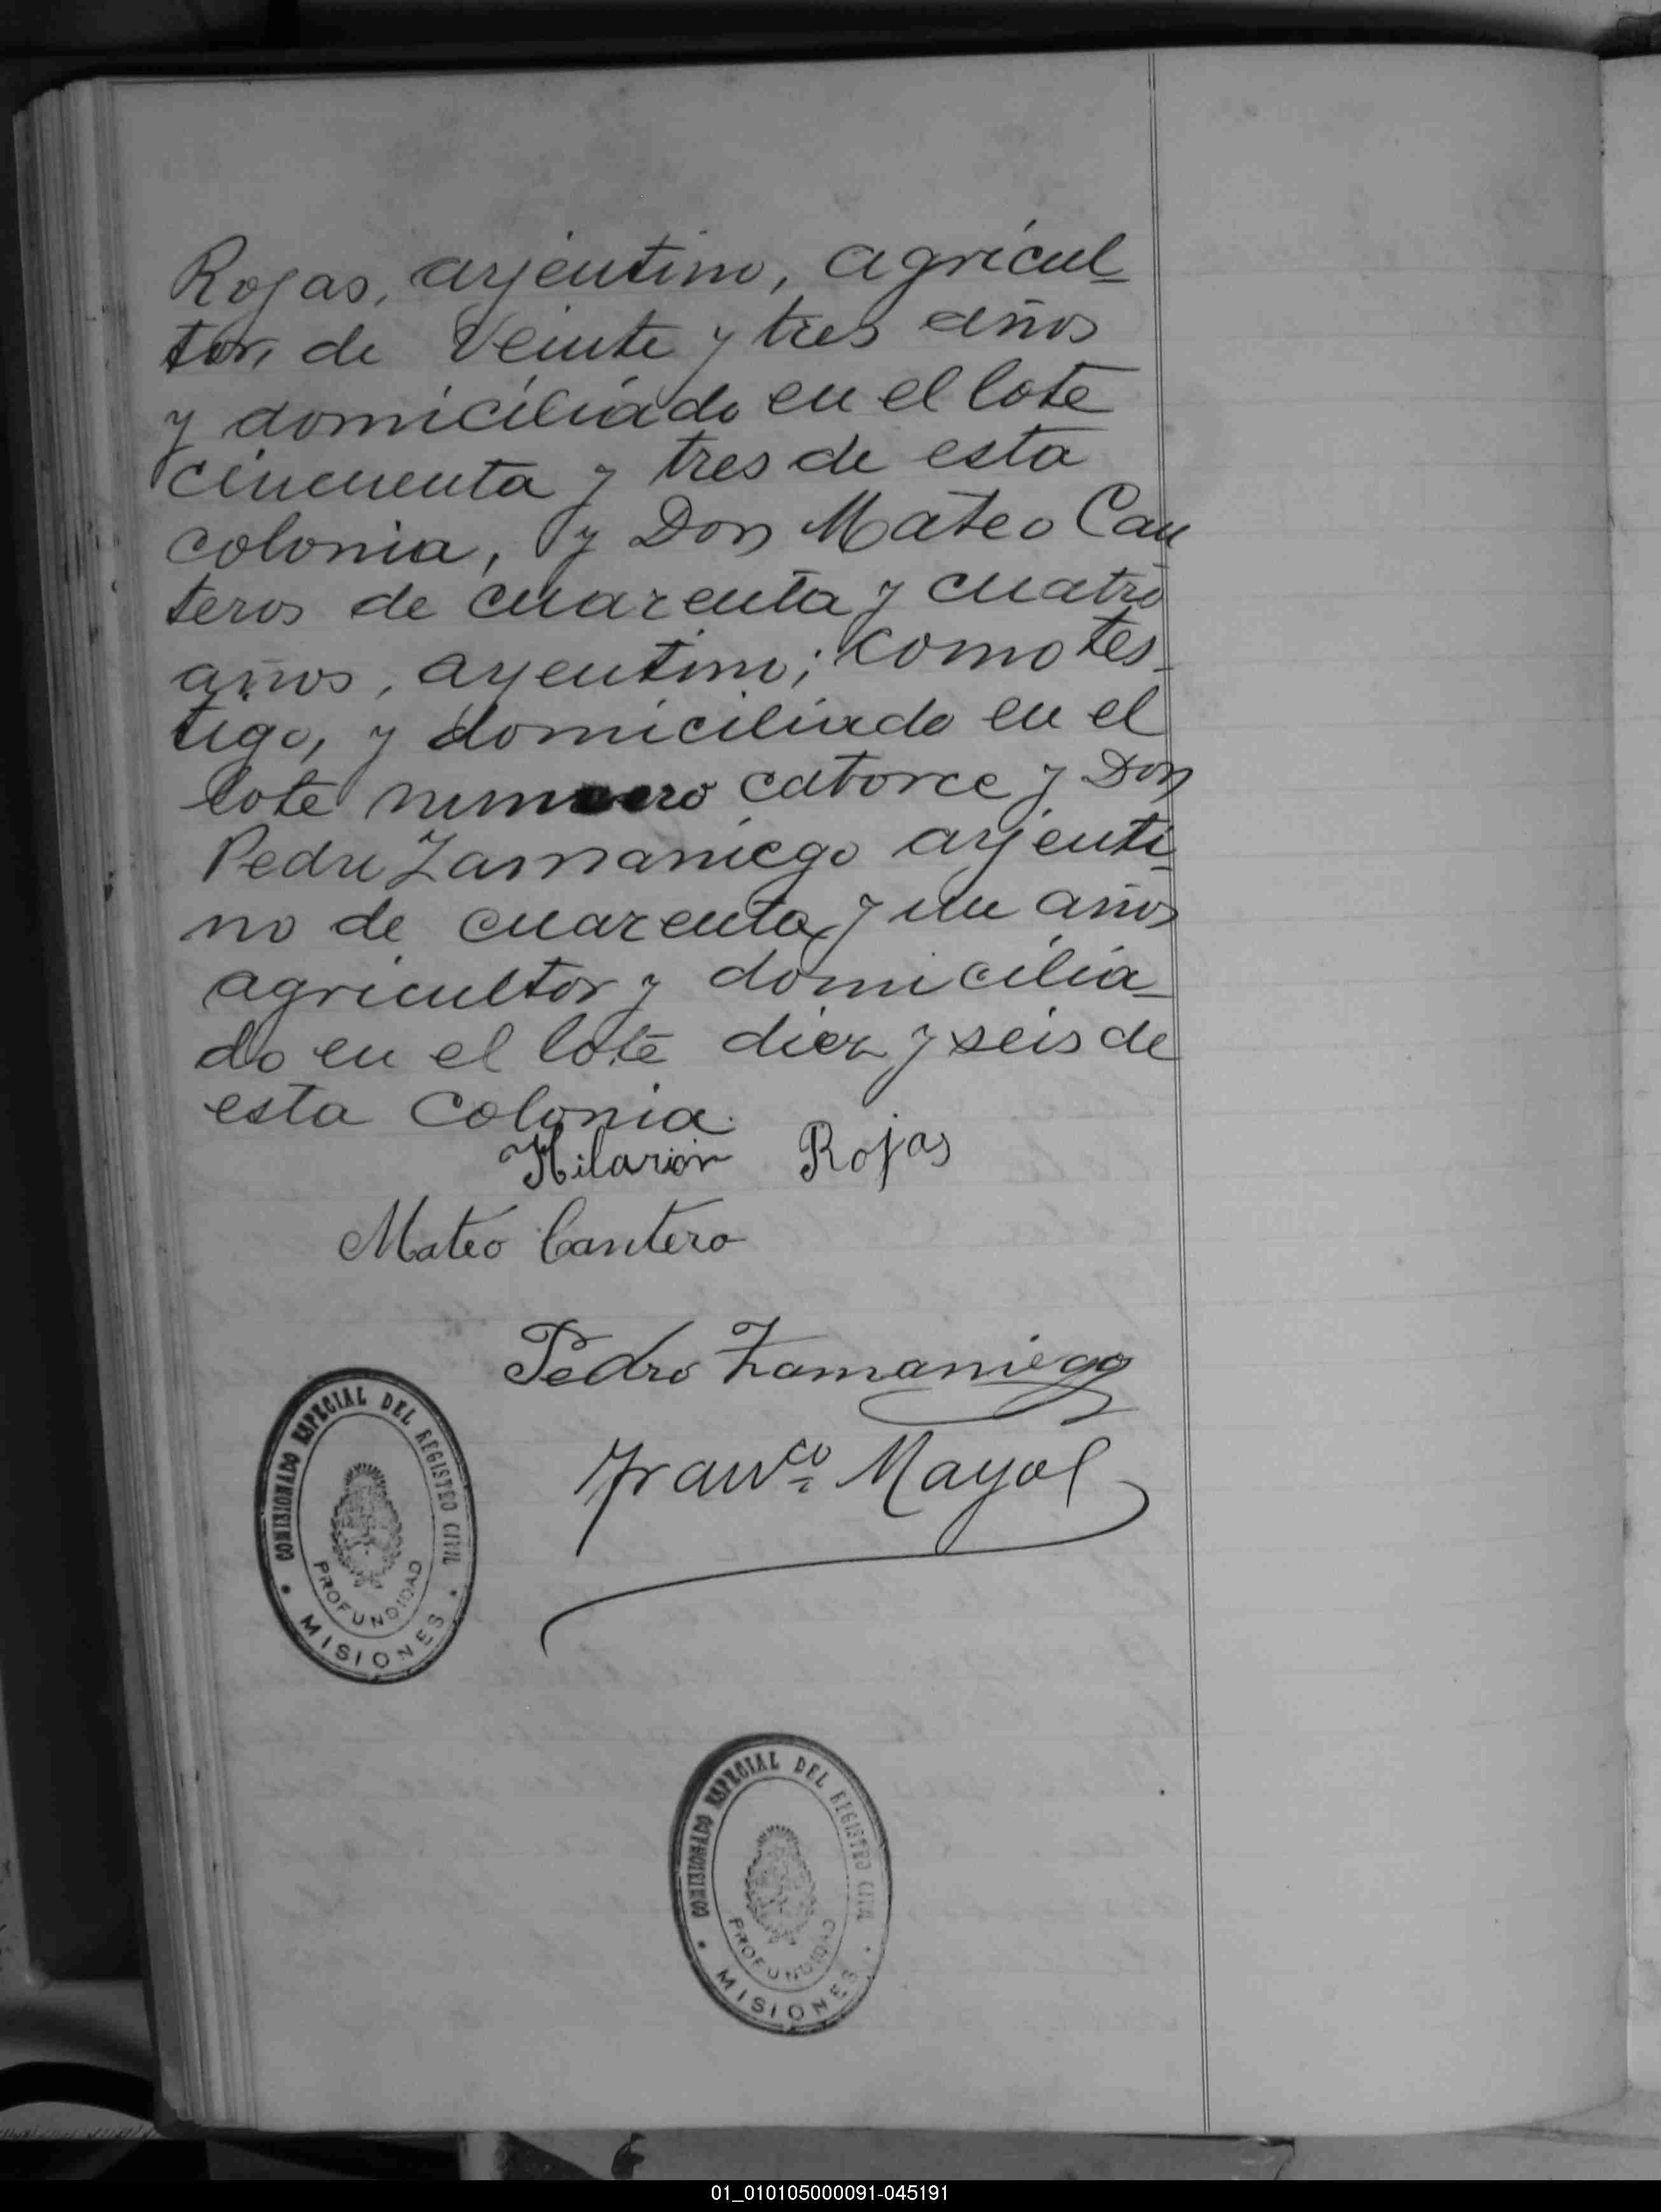 Rojas, arjentino, agricul-
tor, de Veinte y tres años
y domiciliado en el lote
cincuenta y tres de esta
colonia, y Don Mateo Can
teros de cuarenta y cuatro
años, arjentino; como tes-
tigo, y domiciliado en el
lote numero catorce y Don
Pedro Zamaniego arjenti-
no de cuarenta y un años
agricultor y domicilia-
do en el lote diez y seis de
esta Colonia.
Hilarión Rojas
Mateo Cantero
Pedro Zamaniego
Franco Mayol
COMISIONADO ESPECIAL DEL REGISTRO CIVIL
PROFUNDIDAD
MISIONES
COMISIONADO ESPECIAL DEL REGISTRO CIVIL
PROFUNDIDAD
MISIONES
01_010105000091-045191